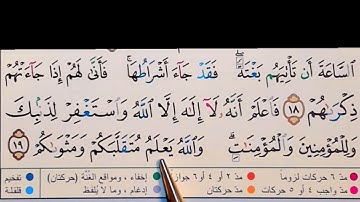 ٱلسَّاعَةَ أَن تَأْتِيَهُم بَغْتَةً ۖ فَقَدْ جَآءَ أَشْرَاطُهَا ۚ فَأَنَّىٰ لَهُمْ إِذَا جَآءَتْهُمْ
ذِكْرَىٰهُمْ ١٨ فَٱعْلَمْ أَنَّهُۥ لَآ إِلَٰهَ إِلَّا ٱللَّهُ وَٱسْتَغْفِرْ لِذَنۢبِكَ
وَلِلْمُؤْمِنِينَ وَٱلْمُؤْمِنَٰتِ ۗ وَٱللَّهُ يَعْلَمُ مُتَقَلَّبَكُمْ وَمَثْوَىٰكُمْ ١٩
مدّ ٦ حركات لزوماً مدّ ٢ أو ٤ أو ٦ جوازاً إخفاء، ومواقع الغُنَّة (حركتان) تفخيم
مدّ واجب ٤ أو ٥ حركات مدّ حركتان إدغام، وما لا يُلفَظ قلقلة